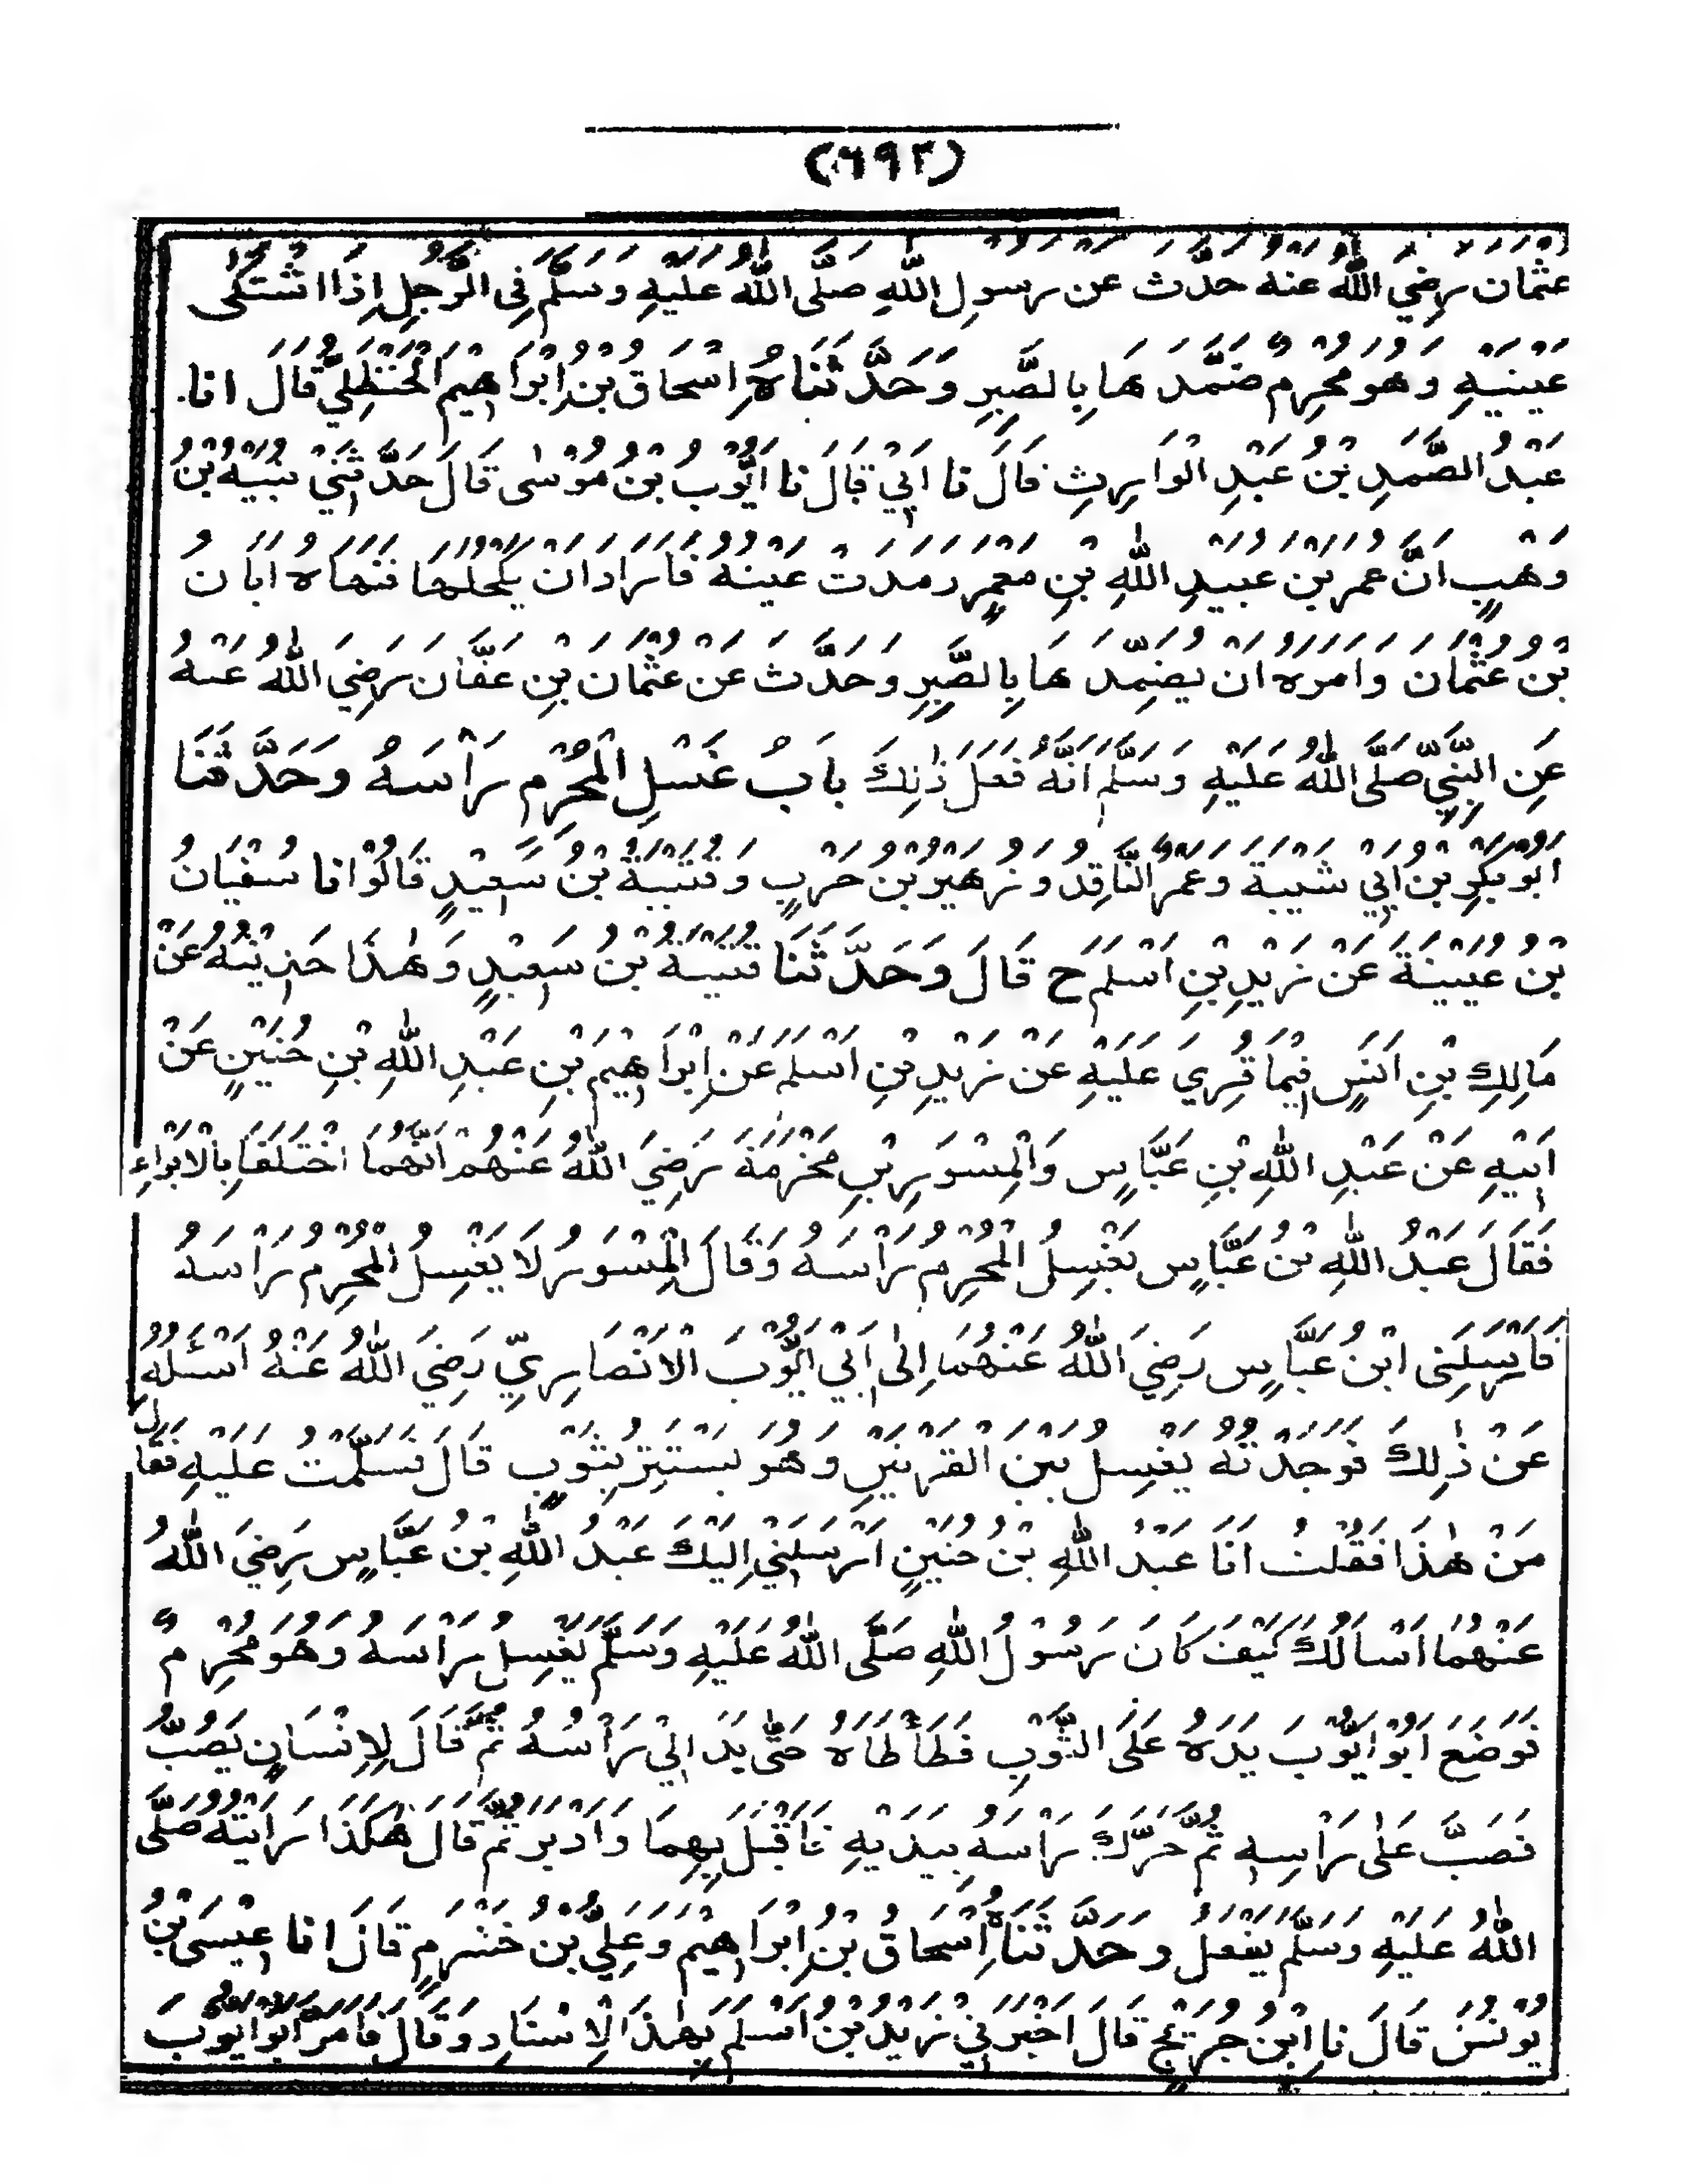 (٦٩٢)
عثمان رضي الله عنه حدث عن رسول الله صلى الله عليه وسلم في الرجل إذا اشتكى
عينيه وهو محرم ضمدها بالصبر وحدثناه إسحاق بن إبراهيم الحنظلي قال انا
عبد الصمد بن عبد الوارث قال نا ابي قال نا ايوب بن موسى قال حدثني نبيه بن
وهب ان عمر بن عبيد الله بن معمر رمدت عينه فاراد ان يكحلها فنهاه ابان
بن عثمان وامره ان يضمدها بالصبر وحدث عن عثمان بن عفان رضي الله عنه
عن النبي صلى الله عليه وسلم انه فعل ذلك باب غسل المحرم رأسه وحدثنا
ابو بكر بن ابي شيبة وعمر الناقد وزهير بن حرب وقتيبة بن سعيد قالوا نا سفيان
بن عيينة عن زيد بن اسلم ح قال وحدثنا قتيبة بن سعيد وهذا حديثه عن
مالك بن انس فيما قري عليه عن زيد بن اسلم عن إبراهيم بن عبد الله بن حنين عن
ابيه عن عبد الله بن عباس والمسور بن مخرمة رضي الله عنهم انهما اختلفا بالابواء
فقال عبد الله بن عباس يغسل المحرم رأسه وقال المسور لا يغسل المحرم رأسه
فارسلنى ابن عباس رضي الله عنهما إلى ابي ايوب الانصاري رضي الله عنه اسئله
عن ذلك فوجدته يغسل بين القرنين وهو يستتر بثوب قال فسلمت عليه فقال
من هذا فقلت انا عبد الله بن حنين ارسلني إليك عبد الله بن عباس رضي الله
عنهما اسألك كيف كان رسول الله صلى الله عليه وسلم يغسل رأسه وهو محرم
فوضع ابو ايوب يده على الثوب فطأطاه حتى بدا لي رأسه ثم قال لإنسان يصب
فصب على رأسه ثم حرك رأسه بيديه فاقبل بهما وادبر ثم قال هكذا رايته صلى
الله عليه وسلم يفعل وحدثناه إسحاق بن إبراهيم وعلي بن خشرم قال انا عيسى بن
يونس قال نا ابن جريج قال اخبرني زيد بن اسلم بهذا الاسناد وقال فامر ابو ايوب